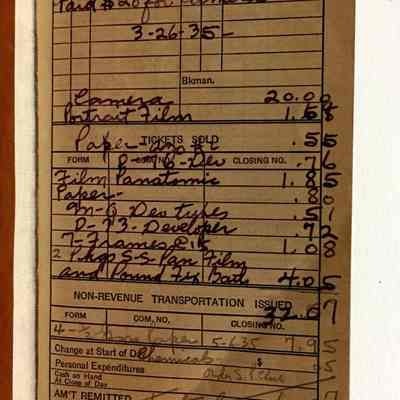 Paid $20 for
3-26-35
Bkman.
Camera 20.00
Portrait Film 1.65
TICKETS SOLD
Paper .55
FORM COM. NO. CLOSING NO.
D-76-Dev .76
Film Panatomic 1.85
Paper- .80
M-Q-Dev types .51
D-73-Developer .72
7-Frames 1.08
2 Pkgs S-S-Pan Film
and Pound Fix Bath 4.05
NON-REVENUE TRANSPORTATION ISSUED
32.07
FORM COM. NO. CLOSING NO.
5-6-35 7.95
Change at Start of Day Chemicals $
Personal Expenditures
Cash on Hand
At Close of Day
AM'T REMITTED